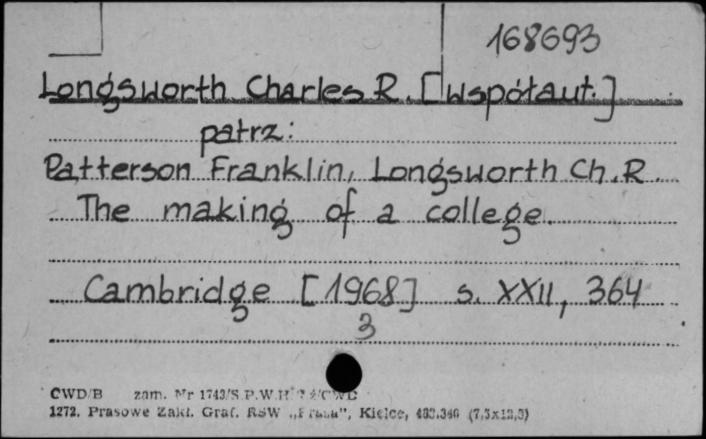 168693
Longsworth Charles R. [Współaut.]
patrz:
Patterson Franklin, Longsworth Ch. R.
The making of a college.
Cambridge [1968] s. XXII, 364
3
CWD/B zam. Nr 1743/S.P.W.H.
1272. Prasowe Zakł. Graf. RSW „Prasa", Kielce, (7,5x12,5)